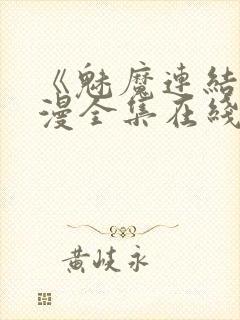 《魅魔連結
漫全集在綫
黄岐永